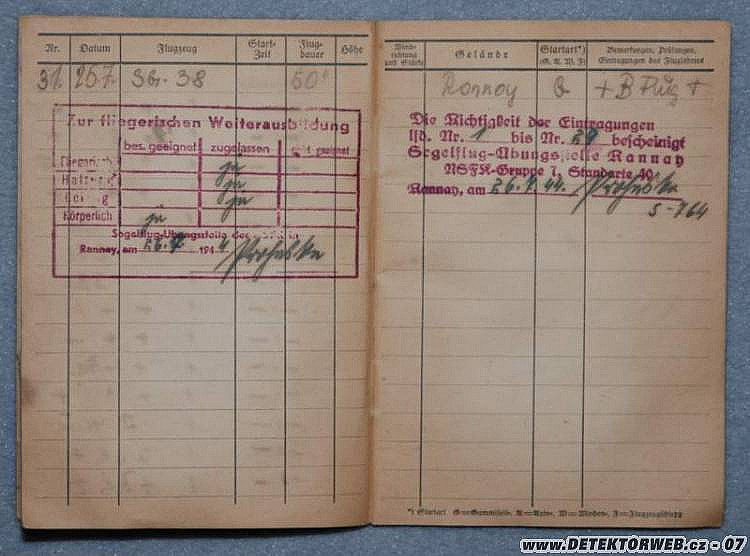 Nr. Datum Flugzeug Start-Zeit Flug-dauer Höhe
31. 26.7. SG-38 50"
Zur fliegerischen Weiterausbildung
bes. geeignet zugelassen nicht geeignet
Fliegerisch ja
Haltung ja
Geistig ja
Körperlich ja
Segelflug-Übungsstelle
Rannay, am 26.7. 1944
Wind-richtung und Stärke Gelände Startart*) (G. A. W. F) Bemerkungen, Prüfungen, Eintragungen des Fluglehrers
Rannay G + B Flug +
Die Richtigkeit der Eintragungen
lfd. Nr. 1 bis Nr. bescheinigt
Segelflug-Übungsstelle Rannay
NSFK-Gruppe 7, Standarte 40
Rannay, am 26.7.44.
*) Startart G=Gummiseil-, A=Auto-, W=Winden-, F=Flugzeugschlepp
www.DETEKTORWEB.cz - 07